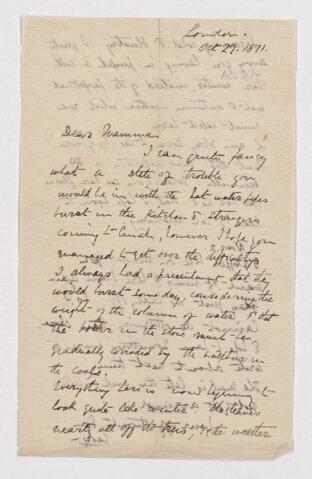 London.
Oct 29. 1891.
Dear Mamma
I can quite fancy
what a state of trouble you
would be in with the hot water pipes
burst in the Kitchen & strangers
coming to lunch, however I hope you
managed to get over the difficulty
I always had a presentiment that they
would burst some day, considering the
weight of the column of water & that
the boiler in the stove must be
gradually corroded by the
the coals.
Everything here is now beginning to
look quite like winter the leaves
nearly all off the trees, & the weather